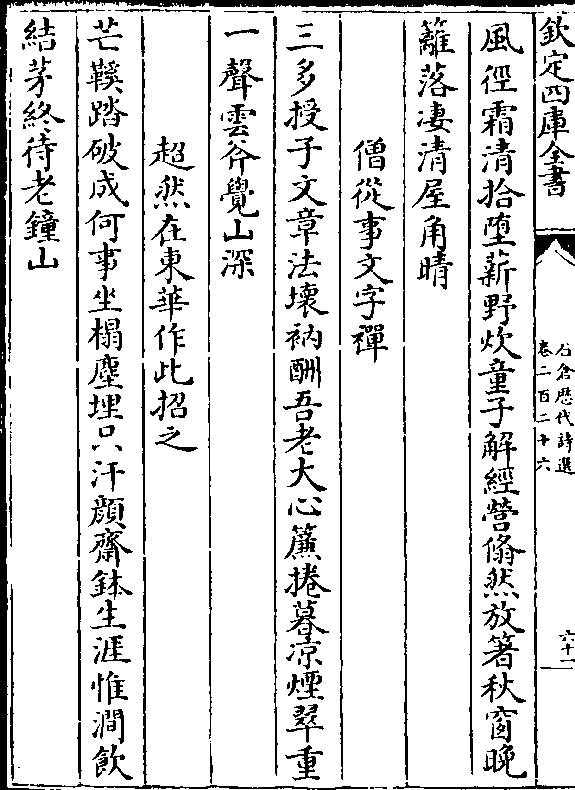 欽定四庫全書
石倉歷代詩選
卷二百二十六
六十一
風徑霜清拾堕薪野炊童子解經營翛然放箸秋窗晚
籬落凄清屋角晴
僧從事文字禪
三多授子文章法壞衲酬吾老大心簾捲暮凉煙翠重
一聲雲斧覺山深
超然在東華作此招之
芒鞵踏破成何事坐榻塵埋只汗顔齋鉢生涯惟澗飲
結茅終待老鐘山